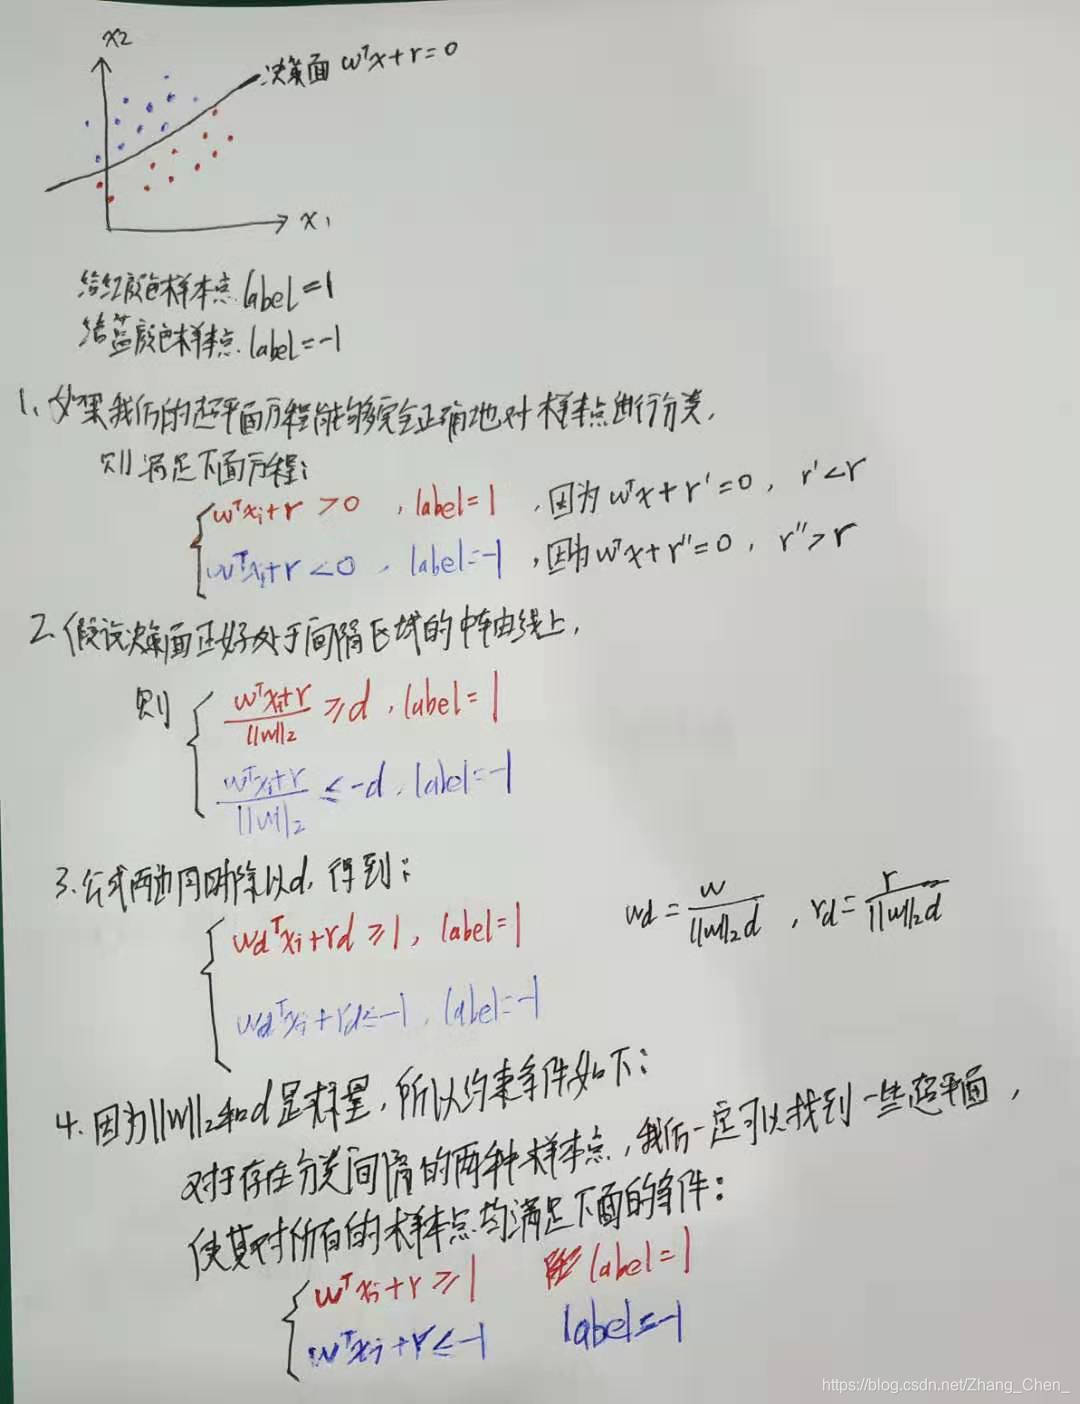 x₂
决策面 wᵀx+r=0
x₁
给红颜色样本点 label=1
给蓝颜色样本点 label=-1
1、如果我们的超平面方程能够完全正确地对样本点进行分类,
则满足下面方程:
wᵀxᵢ+r >0 , label=1 , 因为wᵀx+r'=0, r'<r
wᵀxᵢ+r <0 , label=-1 , 因为wᵀx+r''=0, r''>r
2. 假设决策面正好处于间隔区域的中轴线上,
则 (wᵀxᵢ+r)/||w||₂ ≥d , label=1
(wᵀxᵢ+r)/||w||₂ ≤-d , label=-1
3. 公式两边同时除以d, 得到:
wdᵀxᵢ+rd ≥1, label=1 wd=w/(||w||₂d) , rd=r/(||w||₂d)
wdᵀxᵢ+rd≤-1, label=-1
4. 因为||w||₂和d是标量, 所以约束条件如下:
对于存在分类间隔的两种样本点, 我们一定可以找到一些超平面,
使其对所有的样本点均满足下面的条件:
wᵀxᵢ+r ≥1 label=1
wᵀxᵢ+r≤-1 label=-1
https://blog.csdn.net/Zhang_Chen_